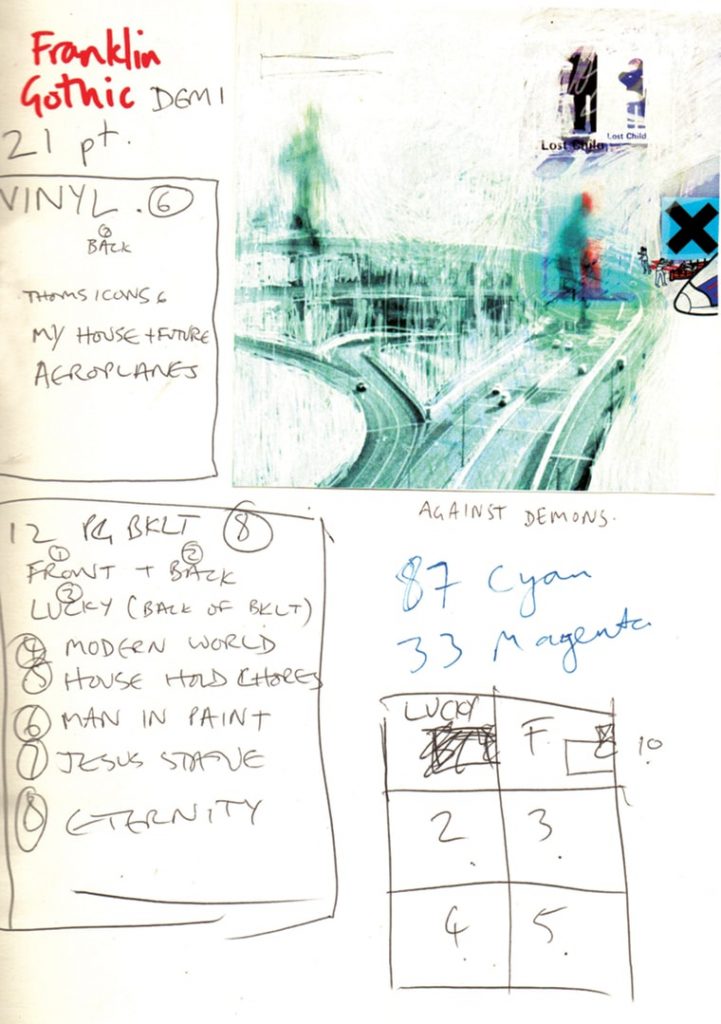 Franklin
Gothic DEMI
21 pt.
VINYL . 6
BACK
THOMS ICONS 6
MY HOUSE + FUTURE
AEROPLANES
Lost Child
Lost Child
12 PG BKLT 8
1 2
FRONT + BACK
3
LUCKY (BACK OF BKLT)
4 MODERN WORLD
5 HOUSE HOLD CHORES
6 MAN IN PAINT
7 JESUS STATUE
8 ETERNITY
AGAINST DEMONS.
87 Cyan
33 Magenta
LUCKY
F. 10
2. 3.
4. 5.